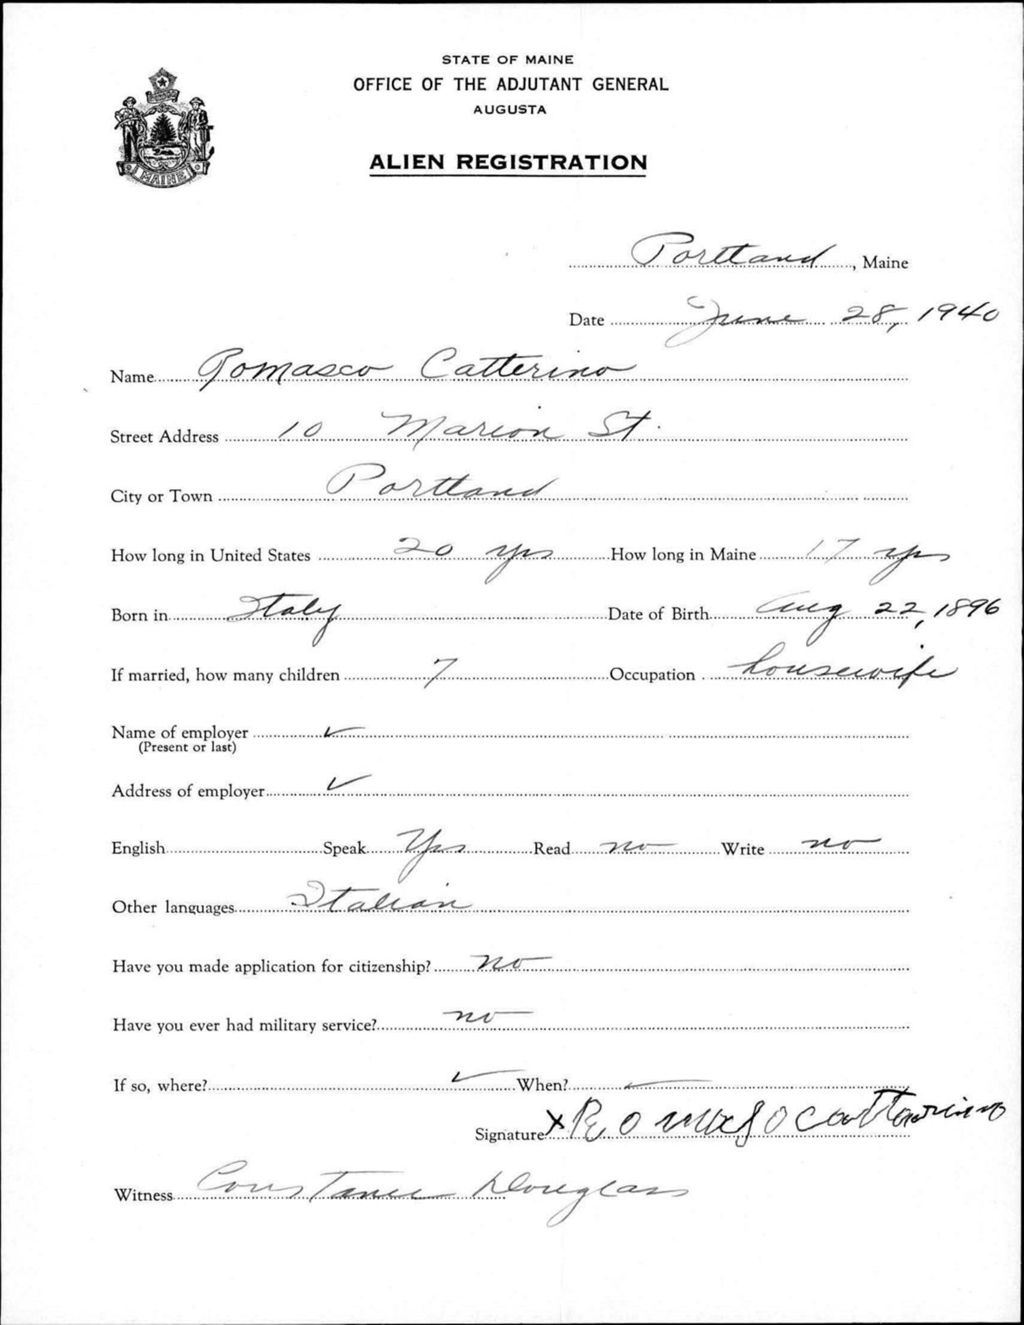 STATE OF MAINE
OFFICE OF THE ADJUTANT GENERAL
AUGUSTA
ALIEN REGISTRATION
MAINE
Portland, Maine
Date June 28, 1940
Name Romasco Catterino
Street Address 10 Marion St.
City or Town Portland
How long in United States 20 yrs How long in Maine 17 yrs
Born in Italy Date of Birth Aug 22, 1896
If married, how many children 7 Occupation housewife
Name of employer ✓
(Present or last)
Address of employer ✓
English Speak Yes Read no Write no
Other languages Italian
Have you made application for citizenship? no
Have you ever had military service? no
If so, where? ✓ When? ✓
Signature X Catterino
Witness Constance Douglass